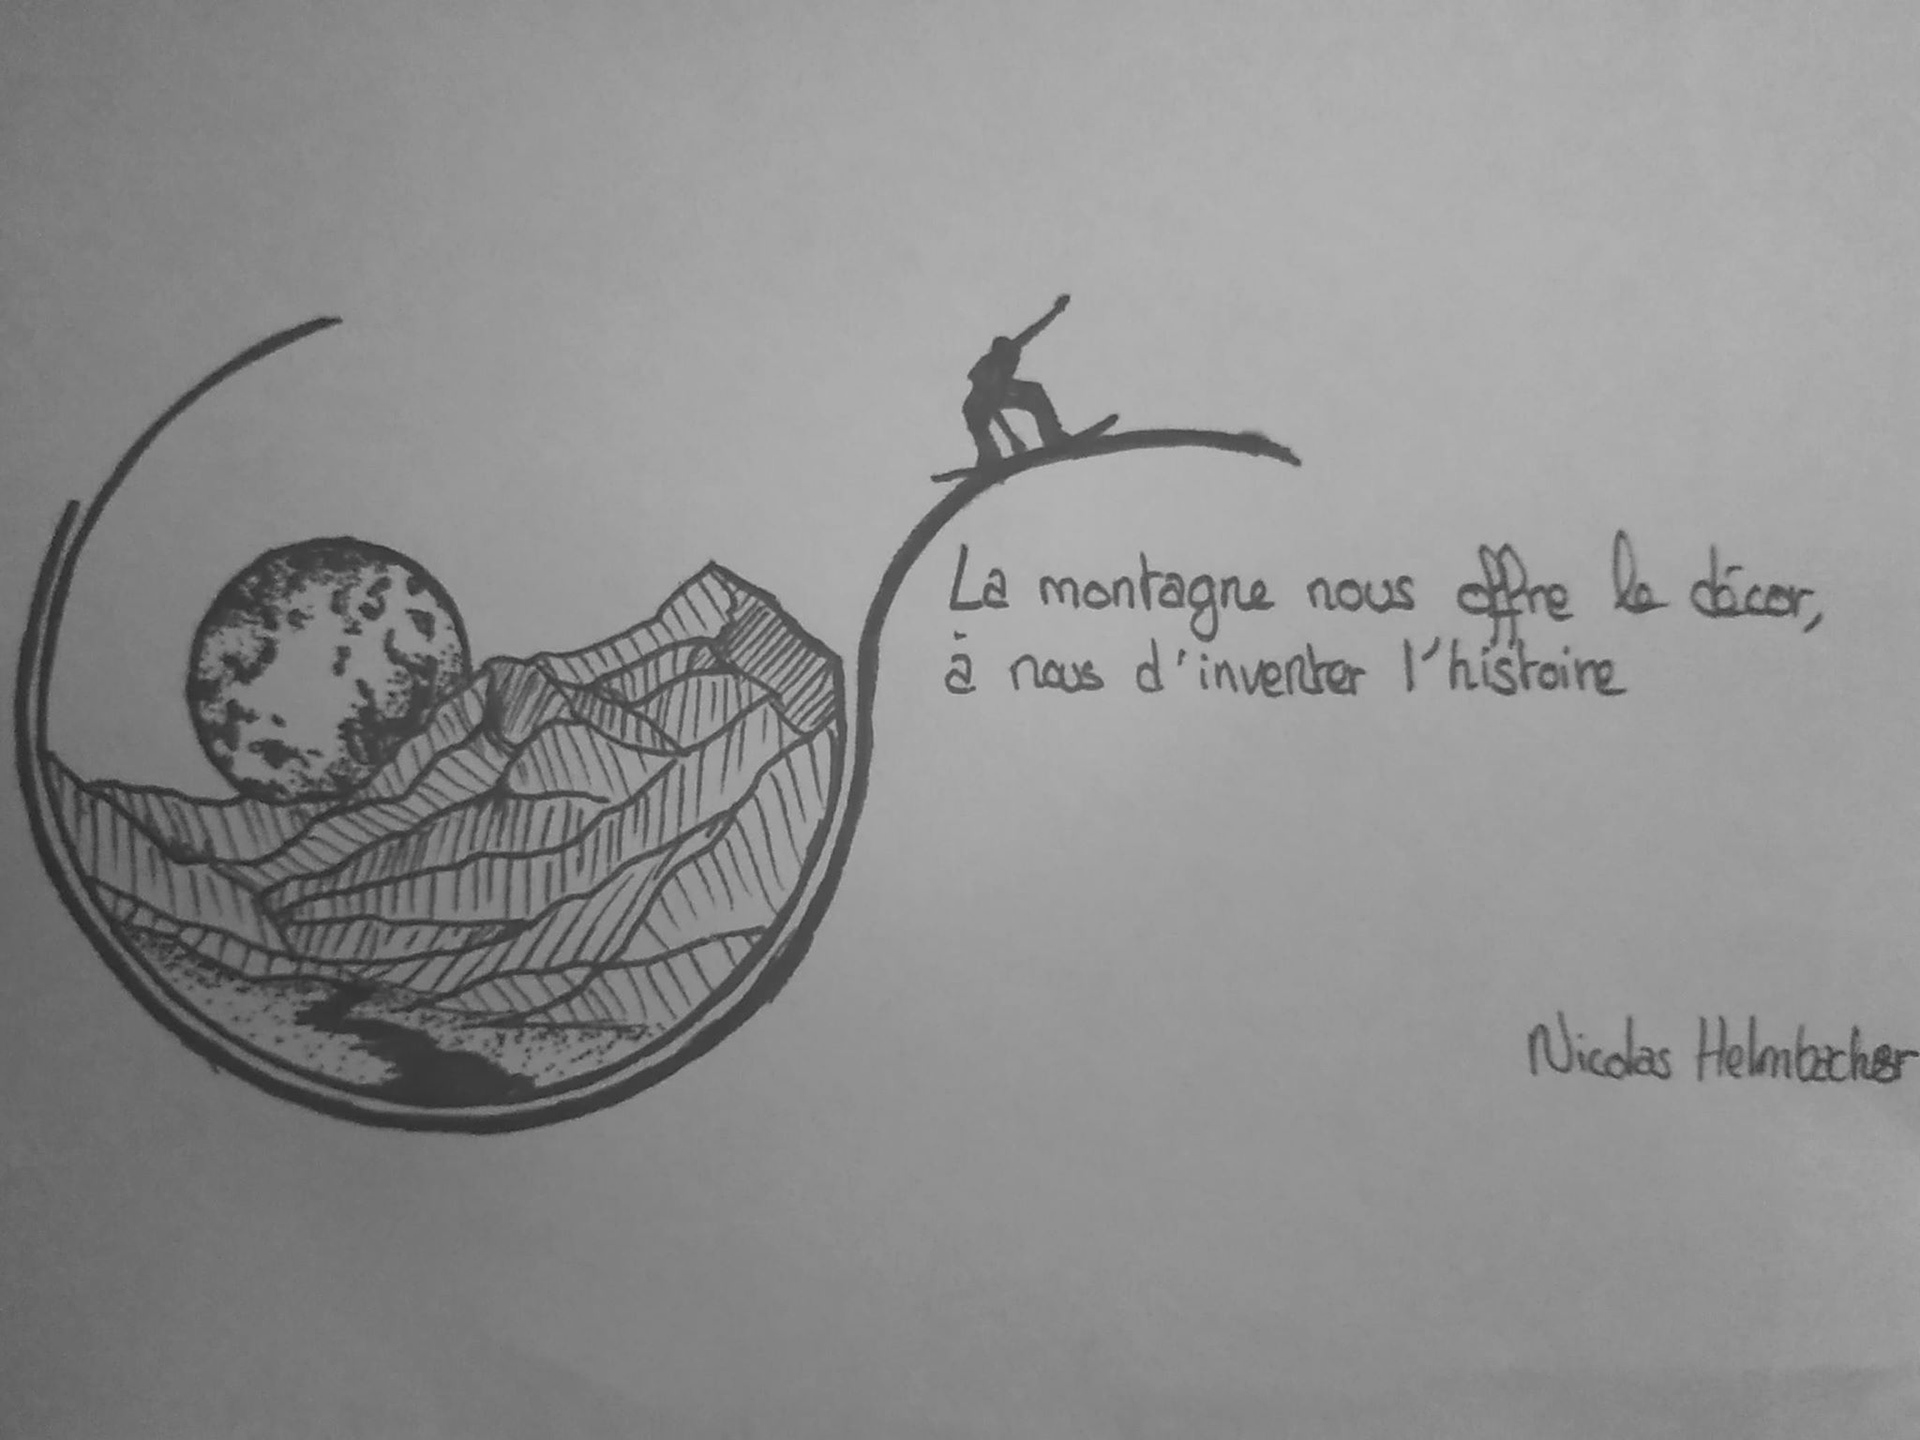 La montagne nous offre le décor,
à nous d'inventer l'histoire
Nicolas Helmbacher